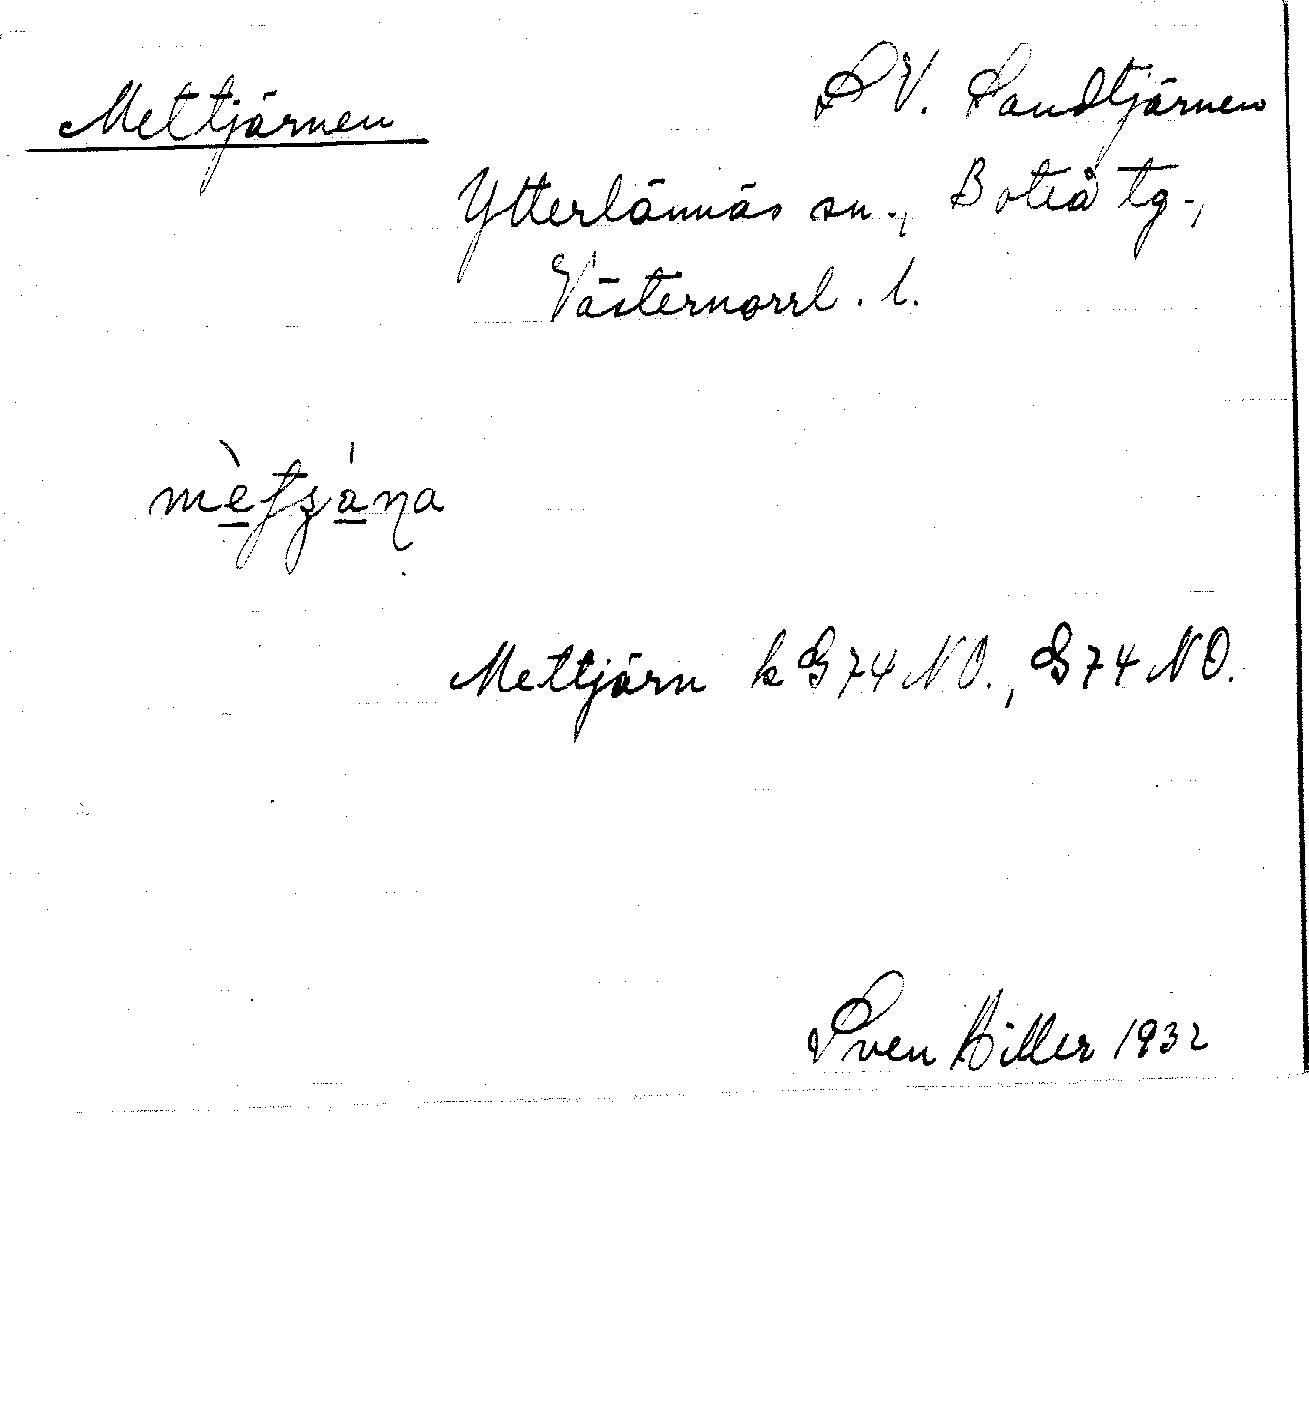 Mettjärnen
S V. Sandtjärnen
Ytterlännäs sn., Boteå tg.,
Västernorrl. l.
Mettjärn k G 74 NO., G 74 NO.
Sven Hiller 1932